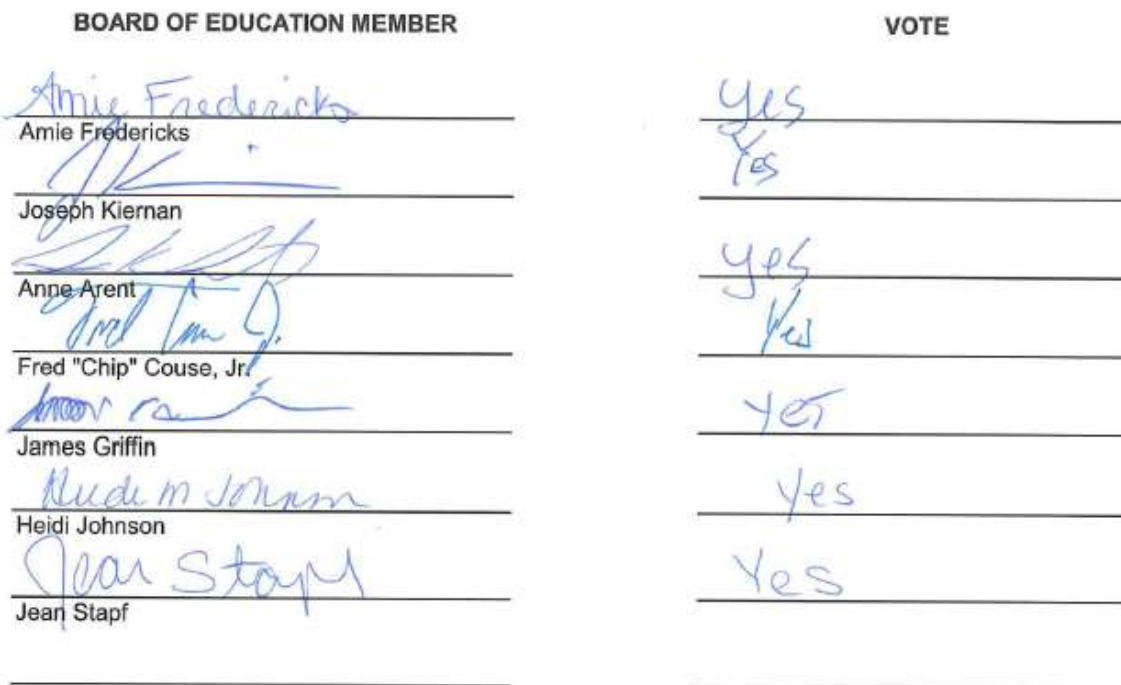 BOARD OF EDUCATION MEMBER VOTE
Amie Fredericks yes
Amie Fredericks
Yes
Joseph Kiernan
yes
Anne Arent
Yes
Fred "Chip" Couse, Jr.
Yes
James Griffin
Heidi M Johnson Yes
Heidi Johnson
Jean Stapf Yes
Jean Stapf